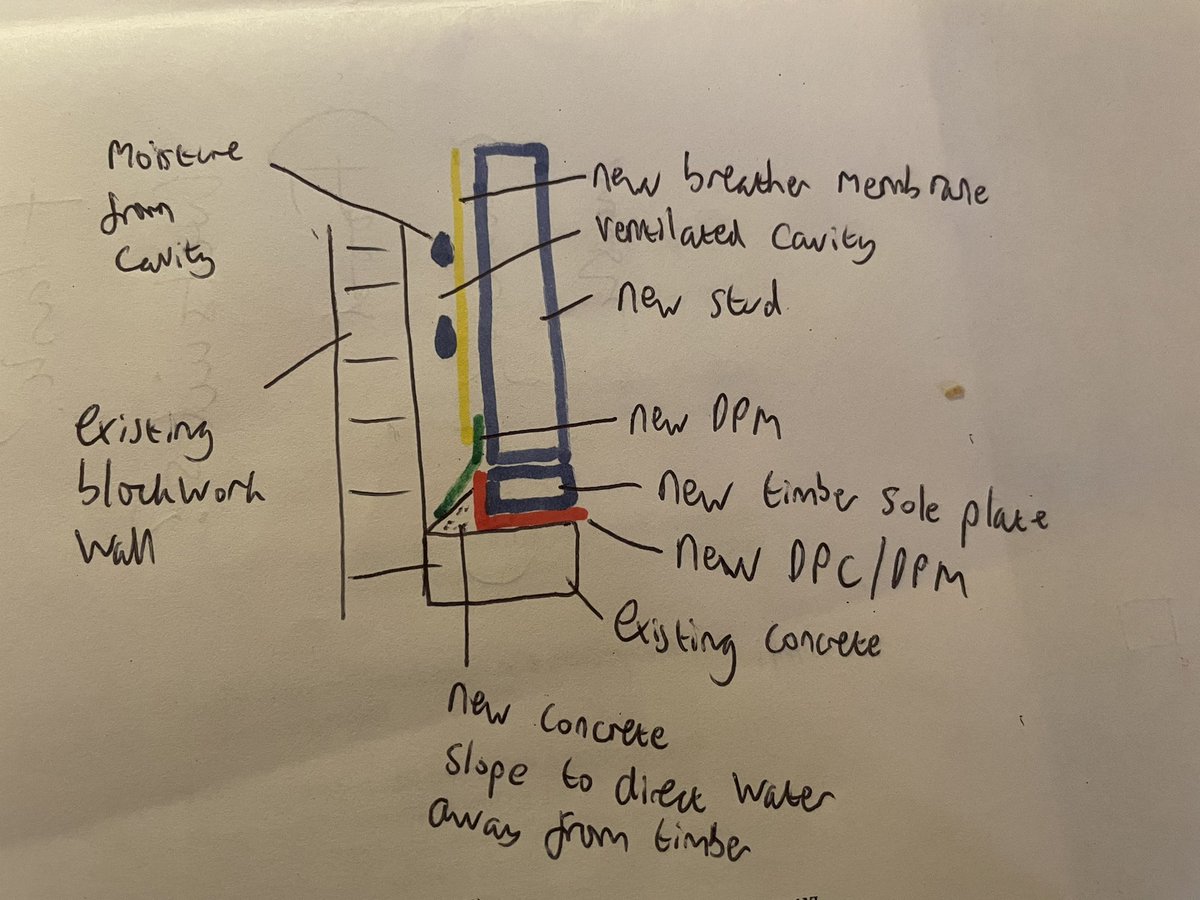 Moisture
from
cavity
new breather membrane
ventilated cavity
new stud
existing
blockwork
wall
new DPM
new timber sole plate
new DPC/DPM
existing concrete
new concrete
slope to direct water
away from timber